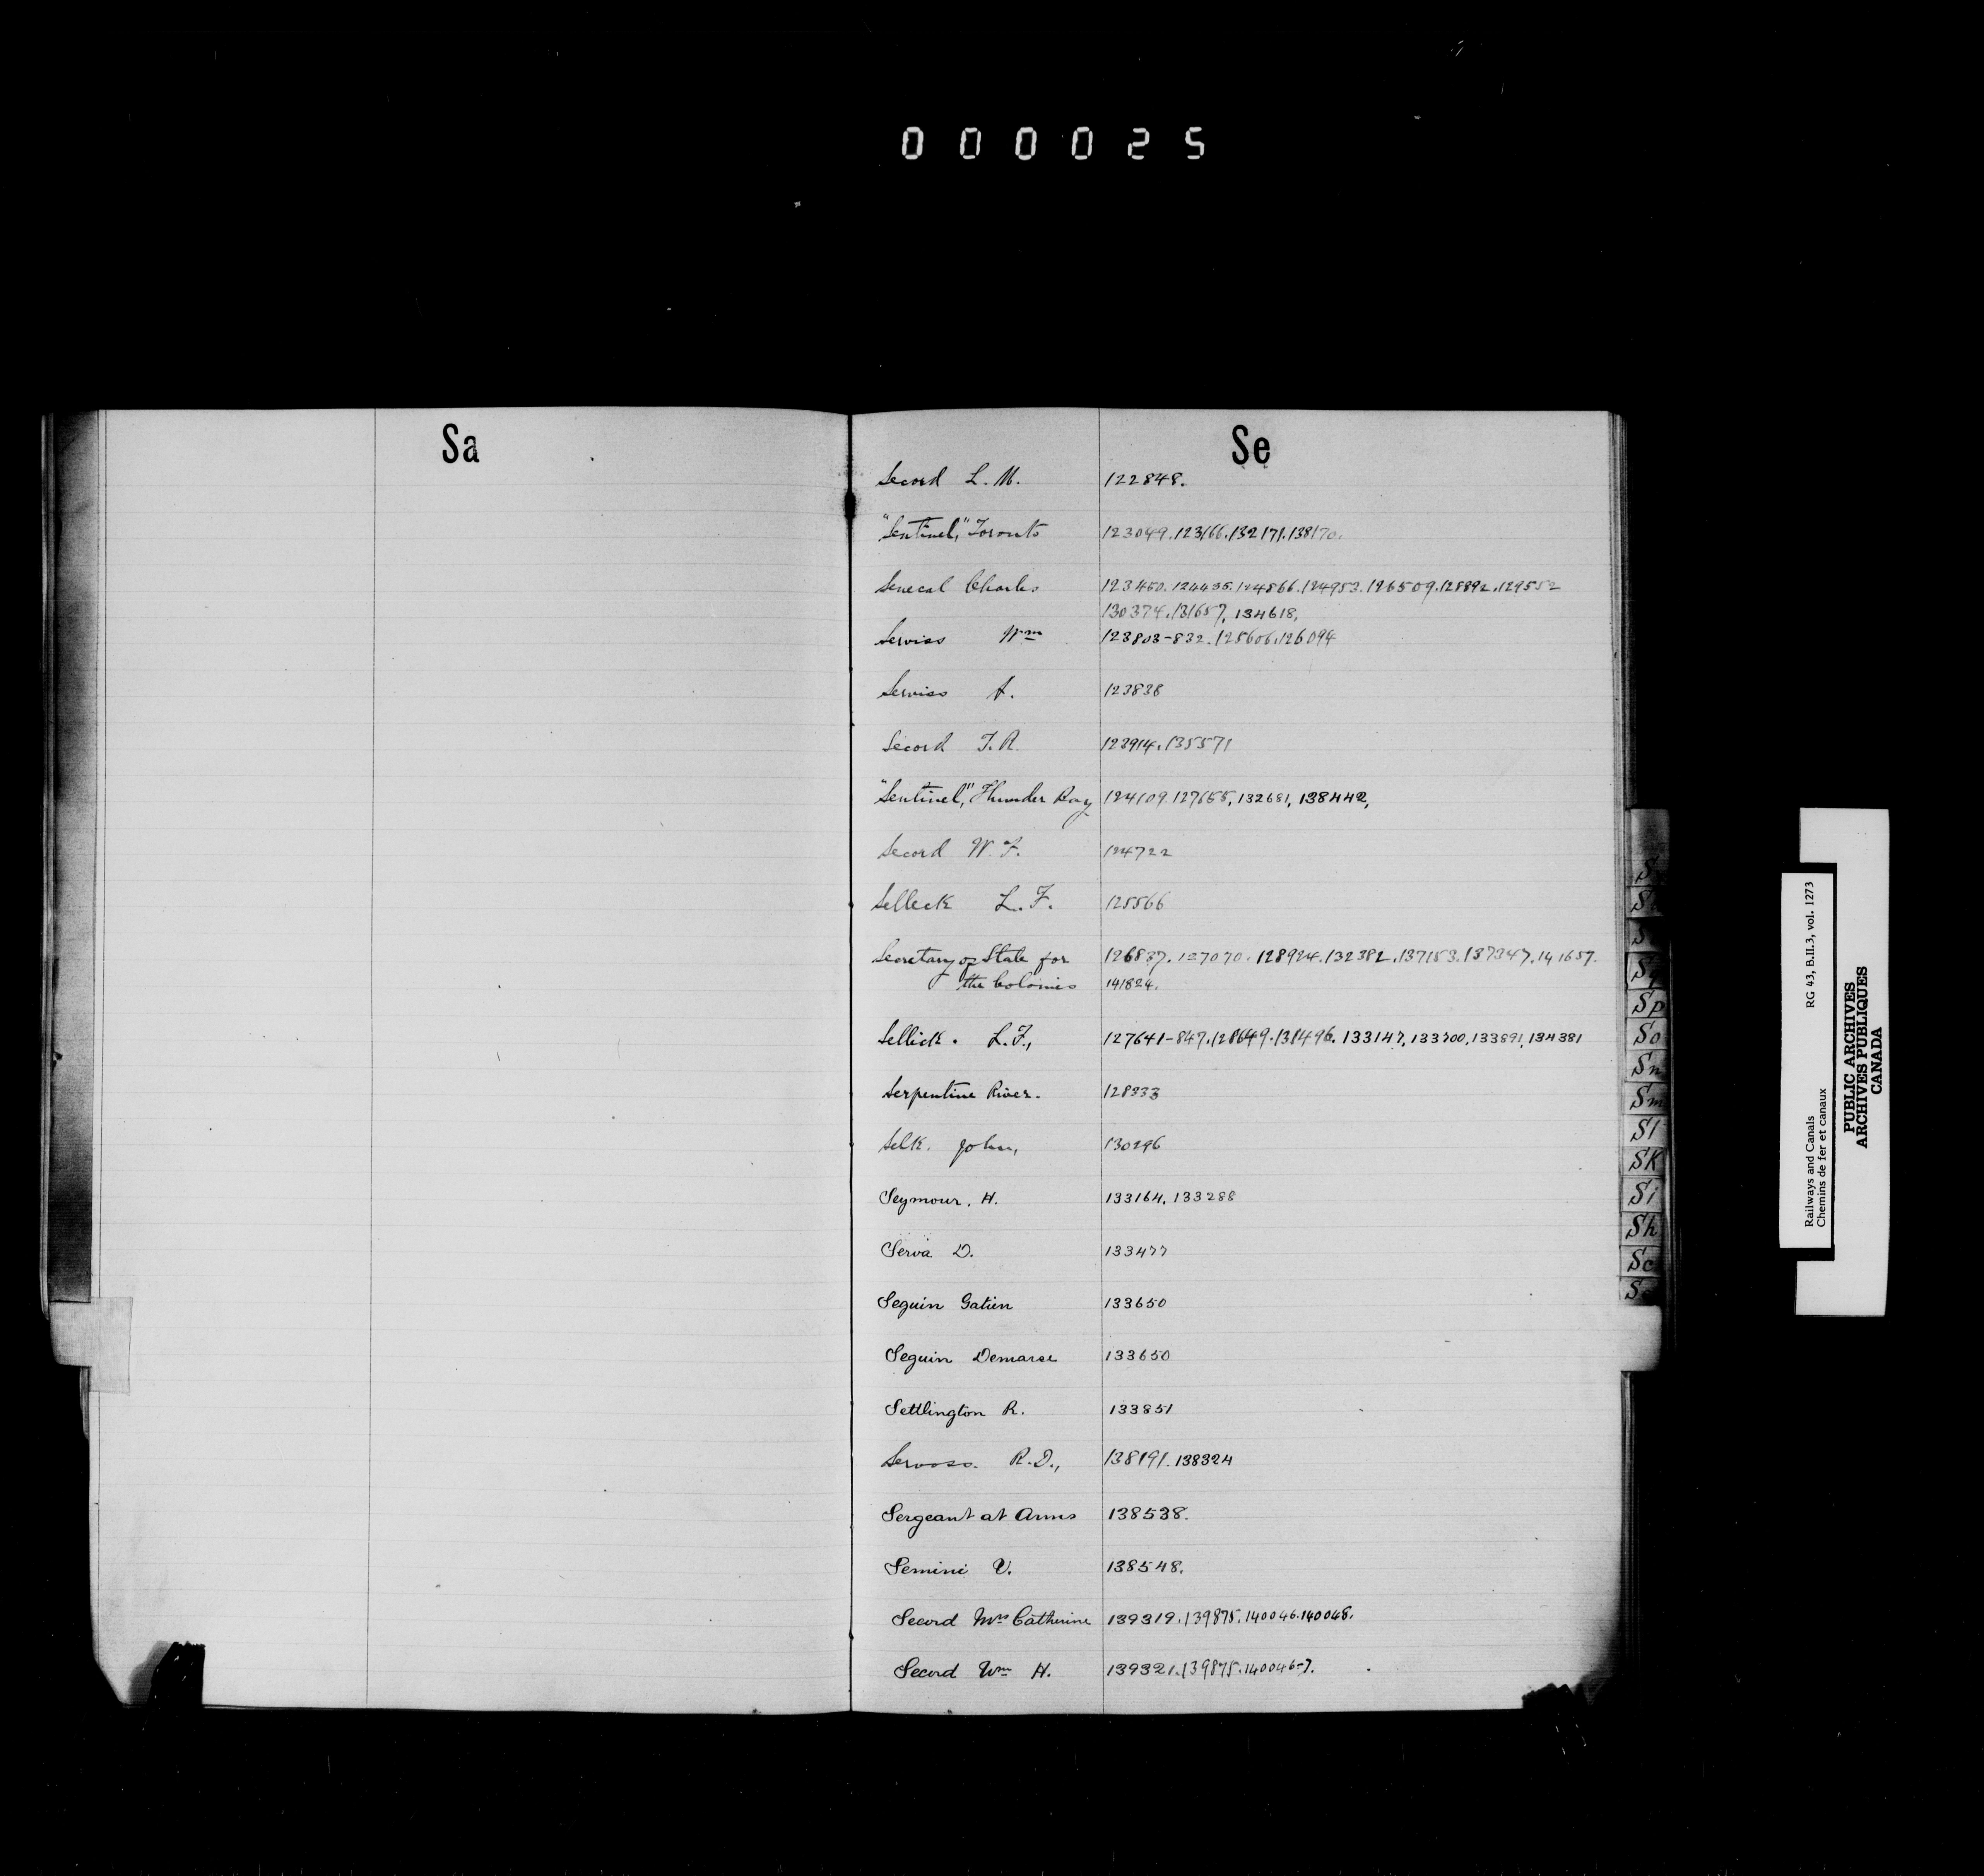 000025
Sa
Se
Secord L. M. 122848.
"Sentinel," Toronto 123049.123166.132171.138170.
Senecal Charles 123450.124435.124866.124953.126509.128892.129552
130374.131657, 134618,
Serviss Wm 123803-832.125606.126094
Serviss A. 123838
Secord T. R. 123914.135571
"Sentinel," Thunder Bay 124109.127655, 132681, 138442,
Secord W. F. 124722
Selleck L. F. 125566
Secretary of State for 126837.127070.128924.132382.137153.137347.141657.
the Colonies 141824.
Sellick. L.F., 127641-847.128649.131496. 133147, 133700, 133891, 134381
Serpentine River. 128333
Selk. John, 130296
Seymour, H. 133164, 133288
Serva D. 133477
Seguin Gatien 133650
Seguin Demarse 133650
Settlington R. 133851
Servoss. R.D., 138191. 138324
Sergeant at Arms 138538.
Semini V. 138548.
Secord Mrs Catherine 139319.139875.140046.140048.
Secord Wm H. 139321.139875.140046-7.
Sp
So
Sn
Sm
Sl
SK
Si
Sh
Sc
RG 43, B.II.3, vol. 1273
Railways and Canals
Chemins de fer et canaux
PUBLIC ARCHIVES
ARCHIVES PUBLIQUES
CANADA